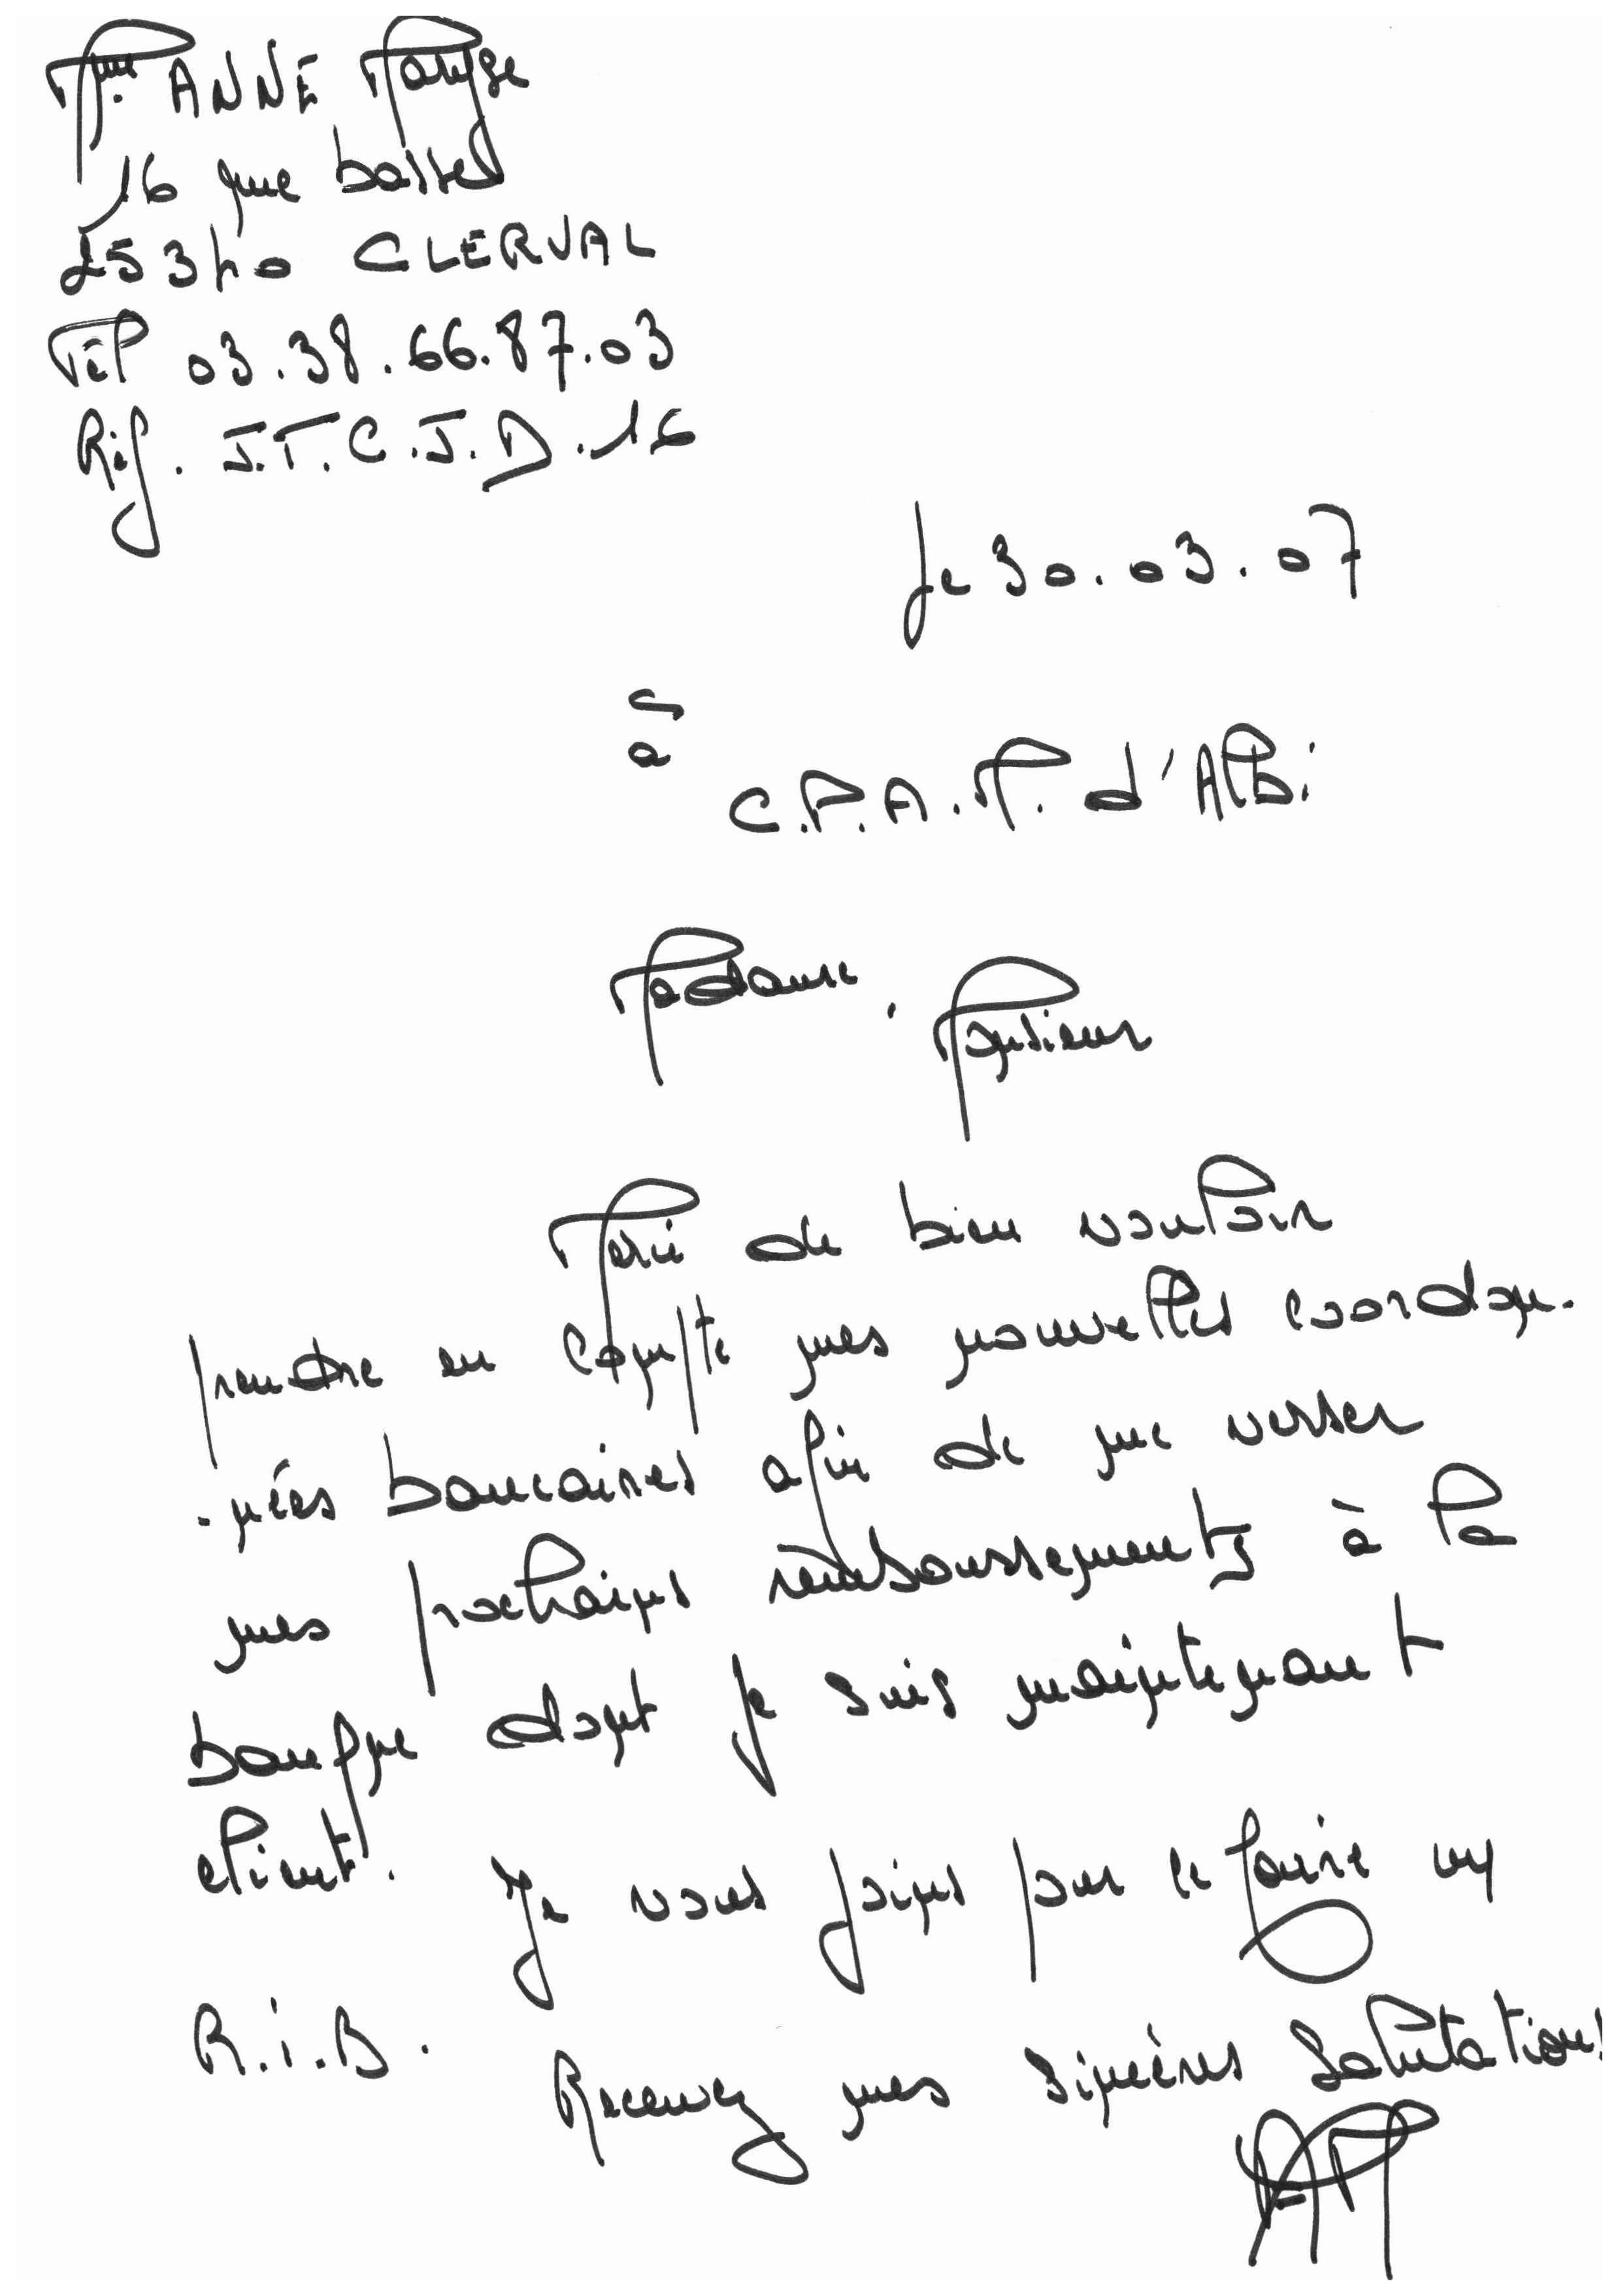 Mme ANNE Maryse
16 rue basse
25340 CLERVAL
Tél 03.38.66.87.03
Réf. J.T.C.J.D.16
le 30.03.07
à
C.P.A.M. d'Albi
Madame, Monsieur
Merci de bien vouloir
prendre en compte mes nouvelles coordon-
-nées bancaires afin de me verser
mes prochains remboursements à la
banque dont je suis maintenant
client. Je vous joins pour ce faire un
R.i.B.
Recevez mes sincères salutations